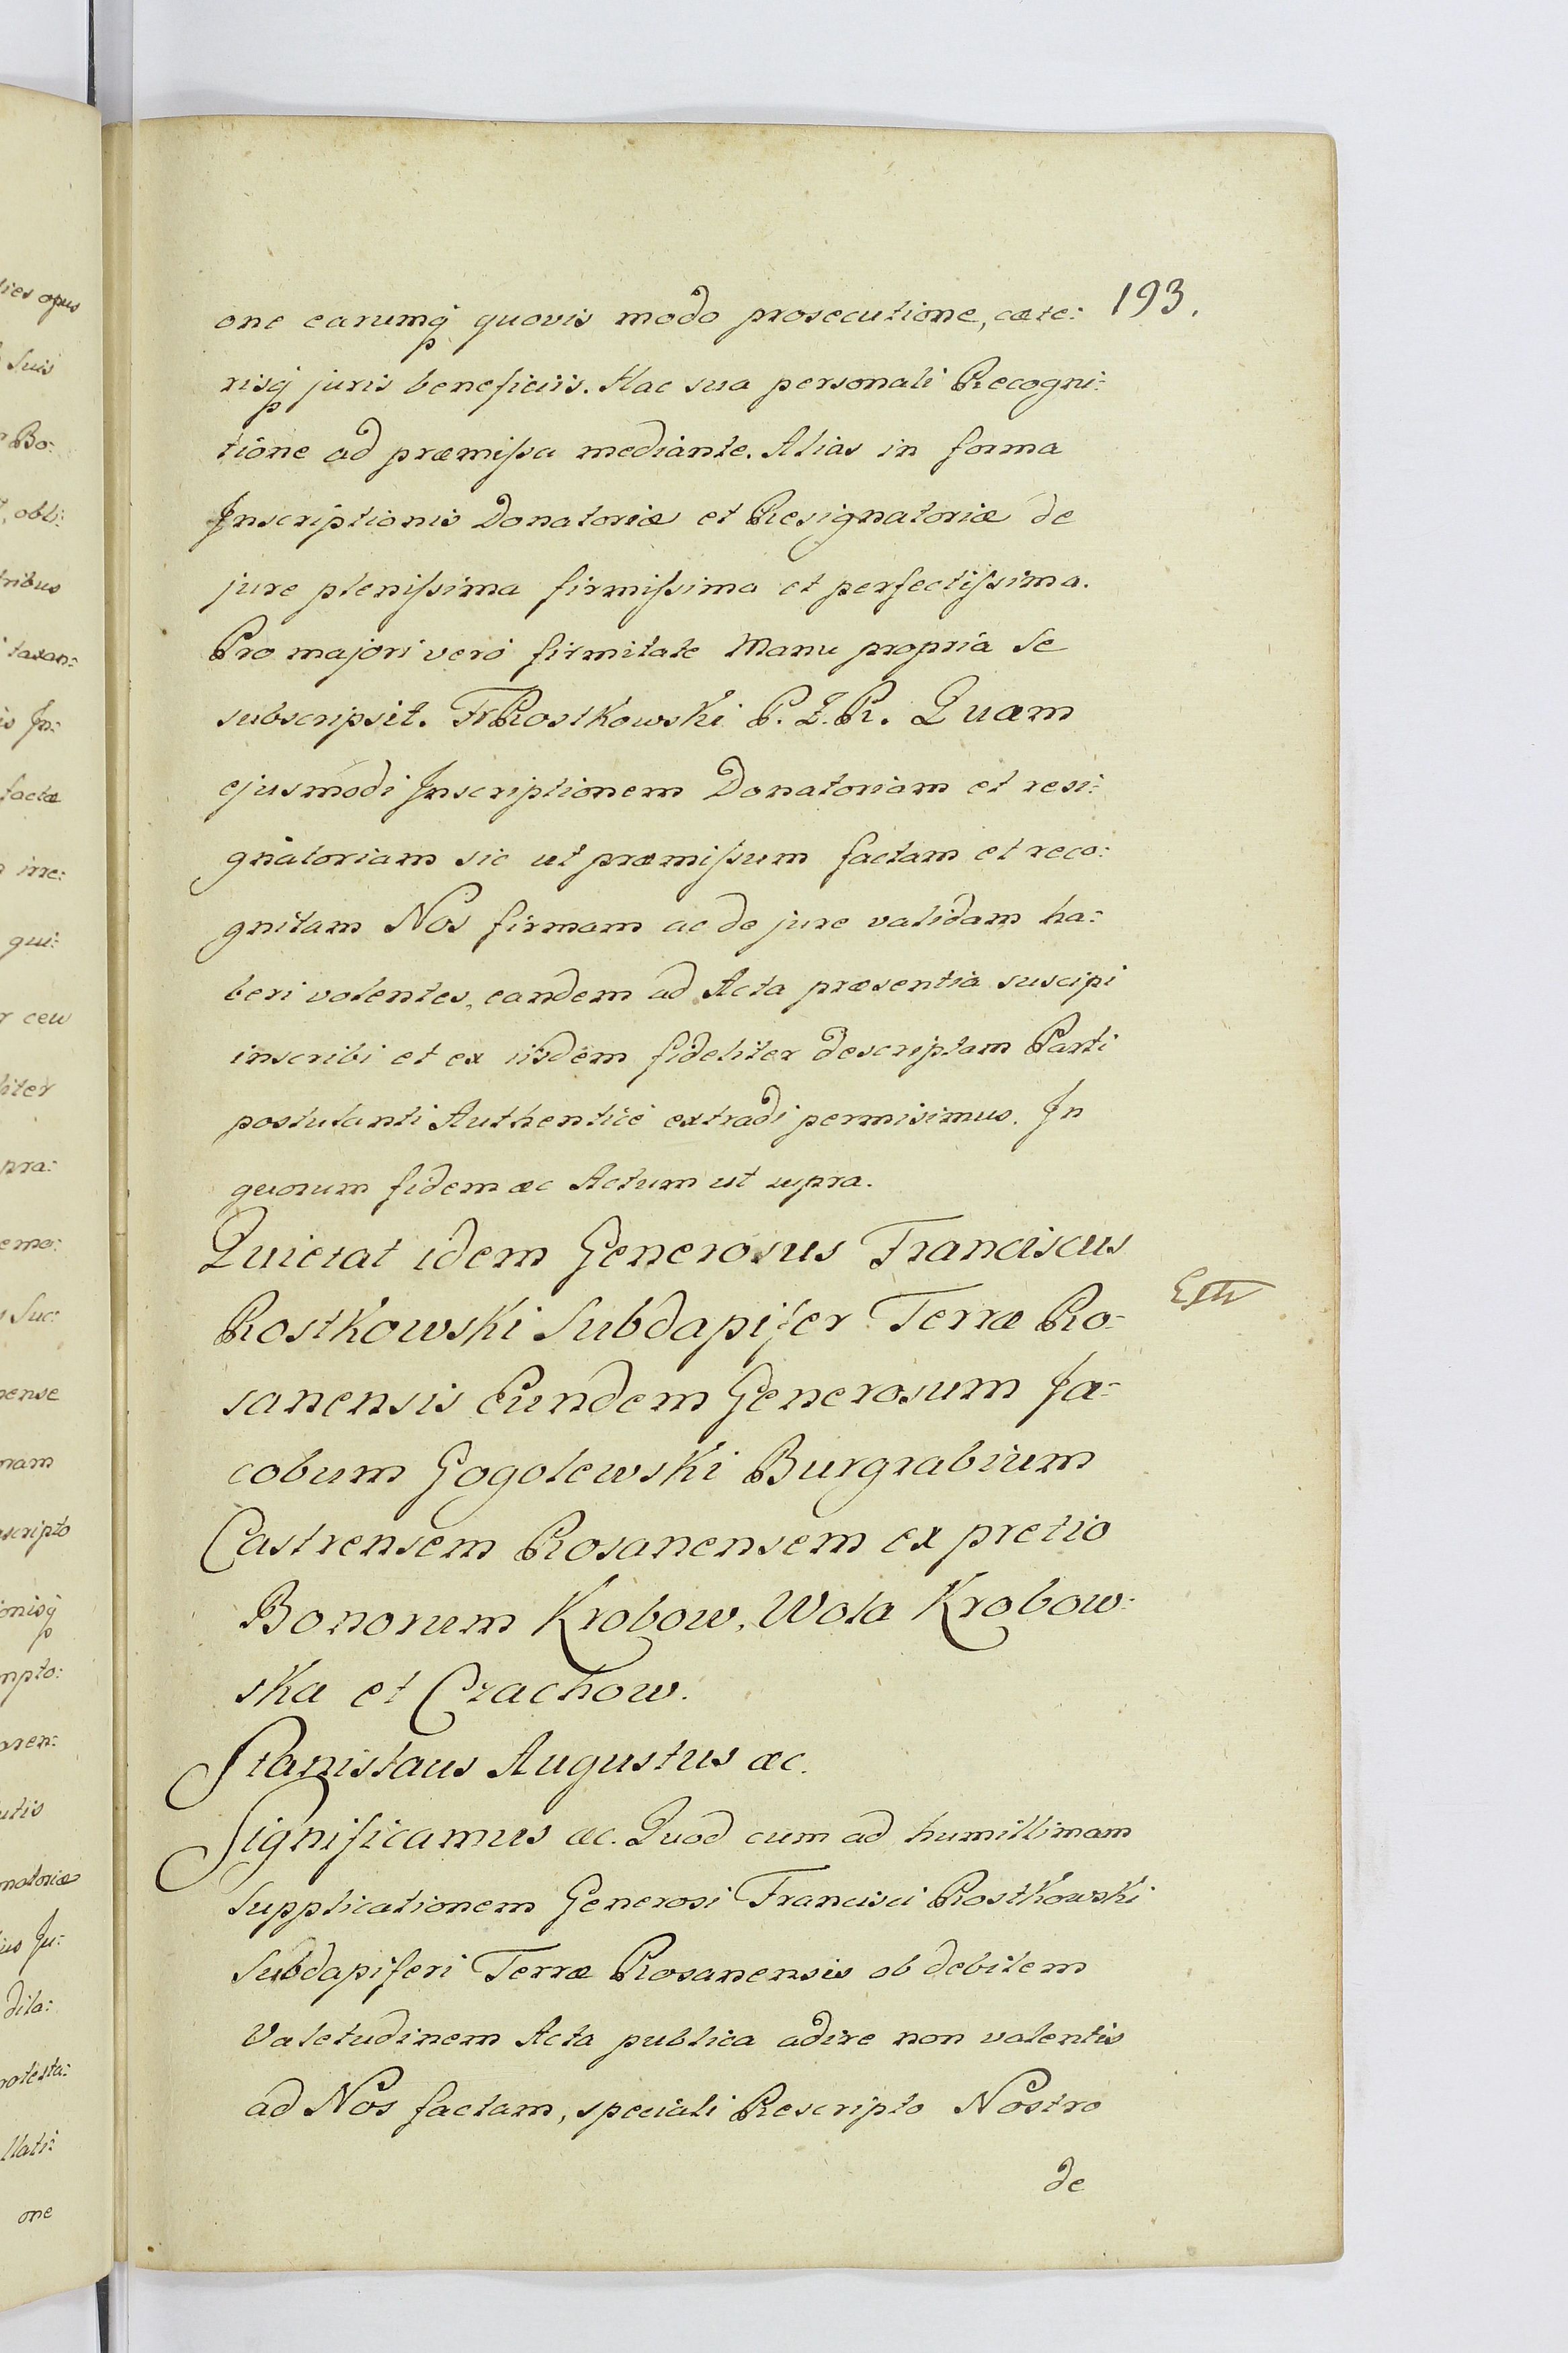 193.
one earumq́ quovis modo prosecutione, cæte:
risq́ juris beneficiis. Hac sua personali Recogni:
tione ad præmißa mediante. Alias in forma
Inscriptionis Donatoriæ et Resignatoriæ de
jure plenißima firmißima et perfectißima.
Pro majori veró firmitate Manu propria se
subscripsit. FrRostkowski P. Z. R. Quam
ejusmodi Inscriptionem Donatoriam et resi:
gnatoriam sic ut præmißum factam et reco:
gnitam Nos firmam ac de jure validam ha:
beri volentes, eandem ad Acta præsentia suscipi
inscribi et ex iisdem fideliter descriptam Parti
postulanti Authenticé extradi permisimus. In
quorum fidem æc Actum ut supra.
Quietat idem Generosus Franciscus
Rostkowski Subdapifer Terræ Ro:
sanensis Eundem Generosum Ja:
cobum Gogolewski Burgrabium
Castrensem Rosanensem ex pretio
Bonorum Krobow, Wola Krobow:
ska et Czachow.
Stanislaus Augustus æc.
Significamus æc. Quod cum ad humillimam
Supplicationem Generosi Francisci Rostkowski
Subdapiferi Terræ Rosanensis ob debilem
Valetudinem Acta publica adire non valentis
ad Nos factam, speciali Rescripto Nostro
de